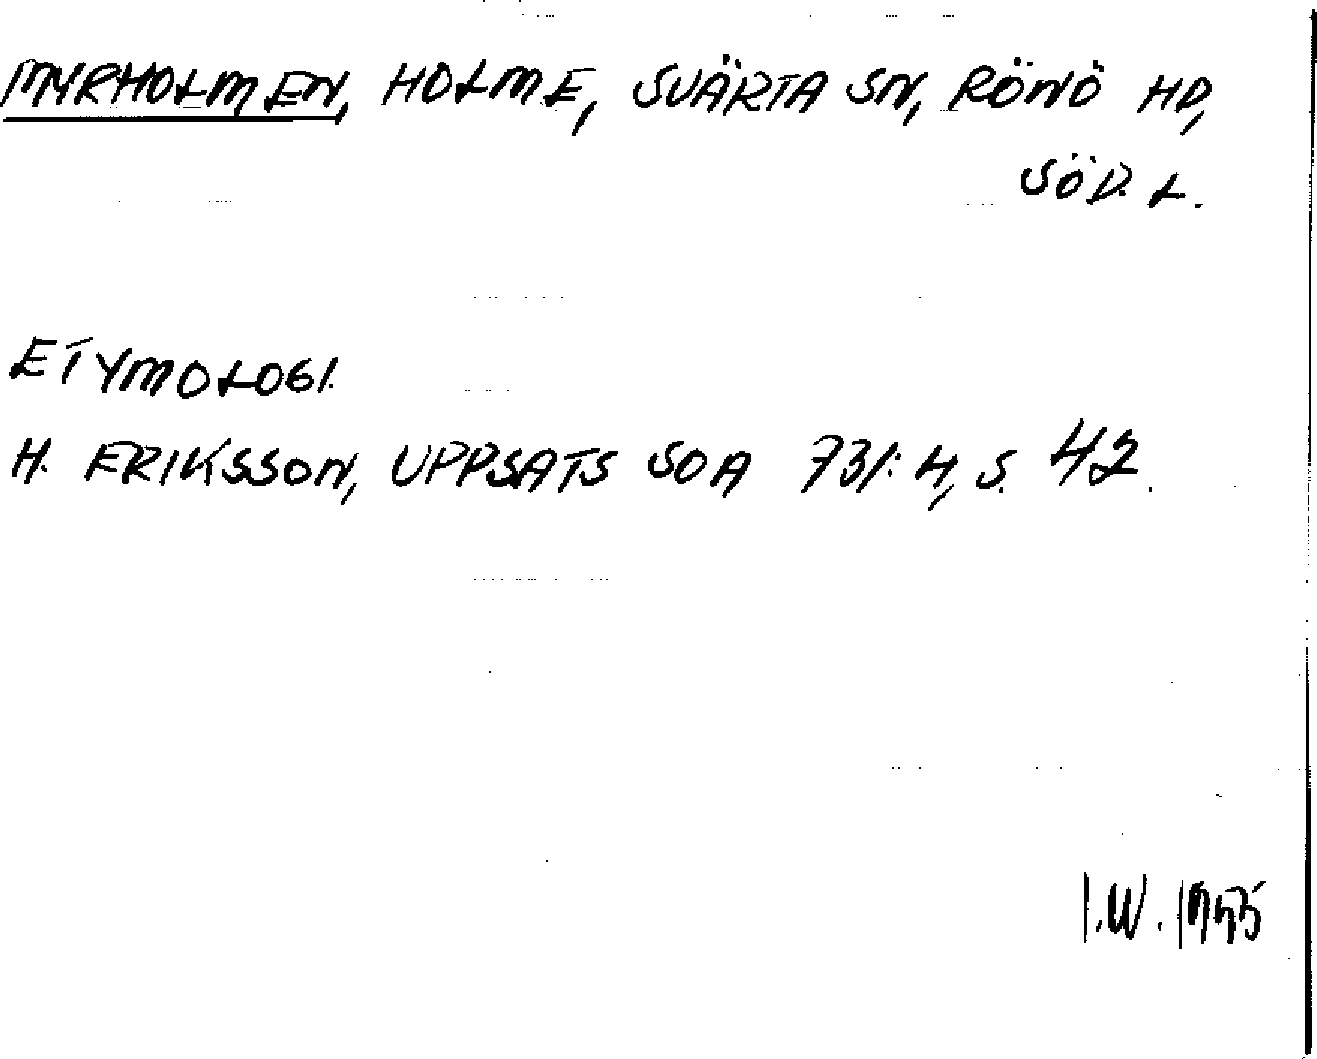 MYRHOLMEN, HOLME, SVÄRTA SN, RÖNÖ HD,
SÖD. L.
ETYMOLOGI.
H. ERIKSSON, UPPSATS SOA 731:4, S. 42.
I.W. 1955